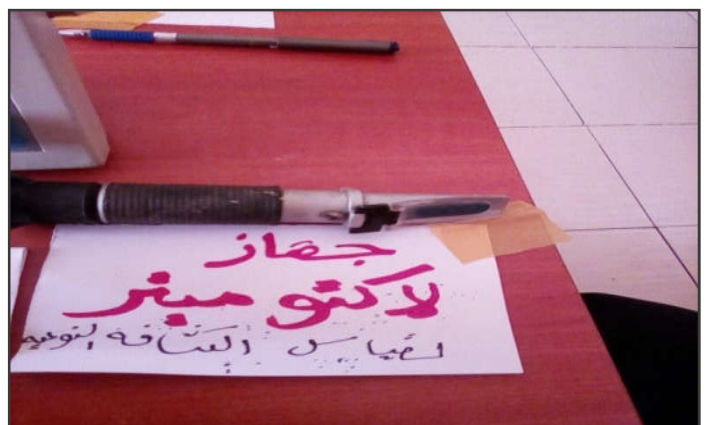 جهاز
لاكتوميتر
لقياس الكثافه النوعيه